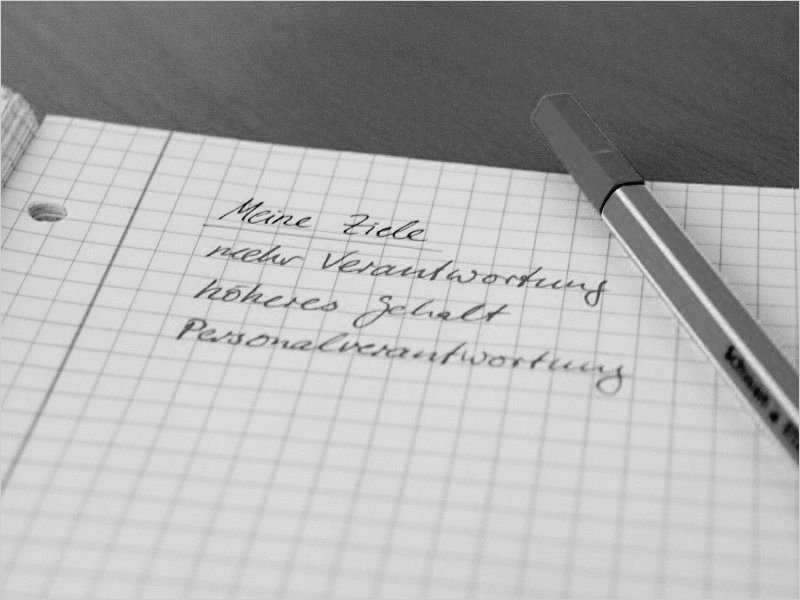 Meine Ziele
mehr Verantwortung
höheres Gehalt
Personalverantwortung